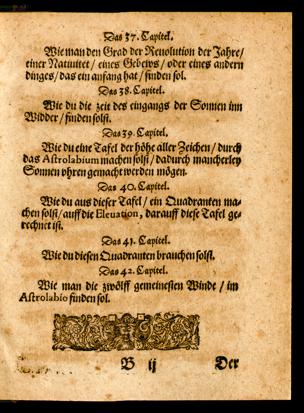 Das 37. Capitel.
Wie man den Grad der Reuolution der Jahre/
einer Natiuitet / eines Gebews / oder eines andern
dinges / das ein anfang hat / finden sol.
Das 38. Capitel.
Wie du die zeit des eingangs der Sonnen inn
Widder / finden solst.
Das 39. Capitel.
Wie du eine Tafel der höhe aller Zeichen / durch
das Astrolabium machen solst / dadurch mancherley
Sonnen vhren gemacht werden mögen.
Das 40. Capitel.
Wie du aus dieser Tafel / ein Quadranten ma-
chen solst / auff die Eleuation, darauff diese Tafel ge-
rechnet ist.
Das 41. Capitel.
Wie du diesen Quadranten brauchen solst.
Das 42. Capitel.
Wie man die zwölff gemeinesten Winde / im
Astrolabio finden sol.
B ij Der